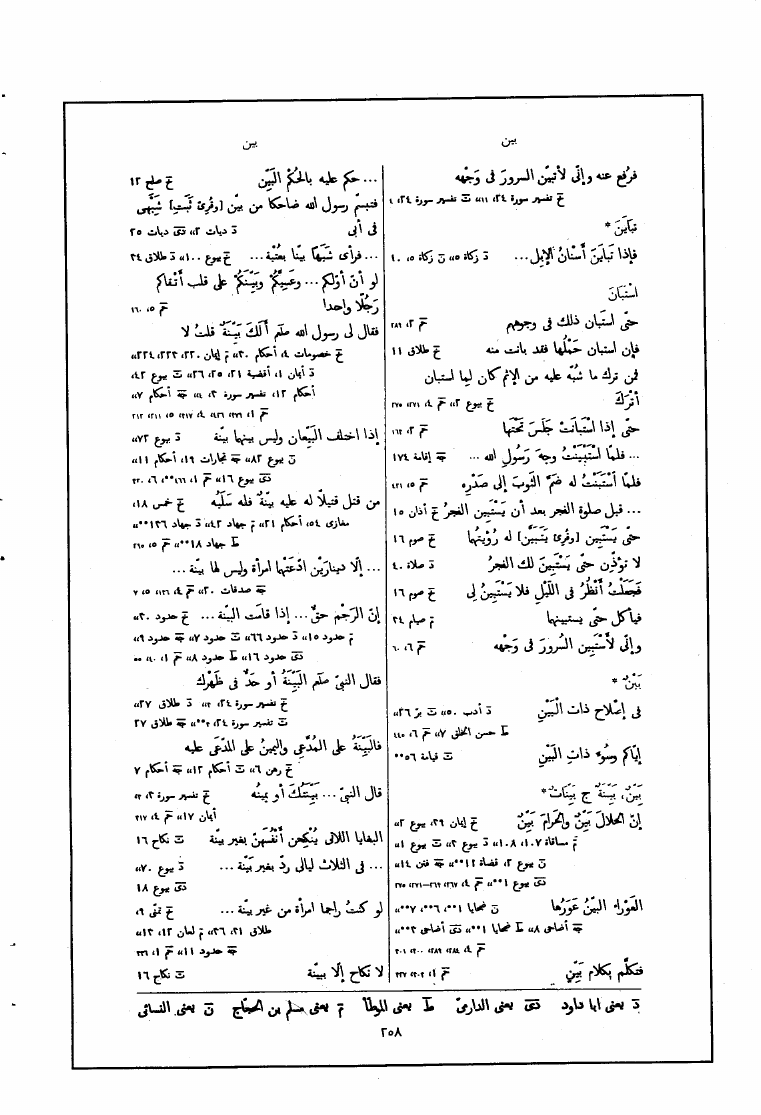 بين
فرُفع عنه وإنّى لأتبيّن السرورَ فى وَجْهه
خ تفسير سورة ٢٤، ١١، ت تفسير سورة ٢٤، ٤
تَبايَنَ *
فإذا تَبايَنَ أسْنانُ الإبل... د زكاة ٥، ن زكاة ٥، ١٠
اسْتَبانَ
حتّى استَبان ذلك فى وجوههم حم ٢، ٢٨٩
فإن استبان حَمْلُها فقد بانت منه خ طلاق ١١
فمن ترك ما شُبّه عليه من الإثم كان لِما استبان
أتْرَكَ خ بيوع ٢، حم ٤، ٢٧١، ٢٧٥
حتّى إذا اسْتَبانَتْ جَلَسَ تَحْتَها حم ٢، ١٦٢
... فلمّا اسْتَبَنْتُ وجهَ رَسُولِ الله ... جه إقامة ١٧٤
فلمّا اسْتَبَنْتُ له ضمّ الثوبَ إلى صَدْرِه حم ٥، ٤٢١
... قبل صلوة الفجر بعد أن يَسْتَبِين الفجرُ خ أذان ١٥
حتّى يَسْتَبِين [وقرئ يَتَبَيَّن] له رُؤْيتُها خ صوم ١٦
لا تؤذِّن حتّى يَسْتَبينَ لك الفجرُ د صلاة ٤٠
فَجَعَلْتُ أنْظُرُ فى اللَّيْل فلا يَسْتَبِينُ لِى خ صوم ١٦
فيأكل حتّى يستبينها م صيام ٣٤
وإنّى لأستَبِين السُرورَ فى وَجْهه حم ٦، ٦٠
بَيْنٌ *
فى إصْلاح ذات البَيْنِ د أدب ٥٠، ت برّ ٢٦،
ط حسن الخلق ٧، حم ٦، ٤٤٥
إيّاكم وسُوءَ ذاتِ البَيْنِ ت قيامة ٥٦**
بَيِّن، بَيِّنَةٌ ج بَيِّنات *
إنّ الحلالَ بَيِّنٌ والحَرامَ بَيِّنٌ خ إيمان ٣٩، بيوع ٢،
م مساقاة ١٠٧، ١٠٨، د بيوع ٣، ت بيوع ١،
ن بيوع ٢، قضاة ١١**، جه فتن ١٤،
دى بيوع ١**، حم ٤، ٢٦٧، ٢٦٩-٢٧١، ٢٧٥
العَوْراء البَيِّنُ عَوَرُها ن ضحايا ١**، ٦**، ٧**،
جه أضاحى ٨، ط ضحايا ١**، دى أضاحى ٣**،
حم ٤، ٢٨٤، ٢٨٩، ٣٠٠، ٣٠١
فتكلّم بكلام بَيِّنٍ حم ١، ٣٠٢، ٣٢٧
بين
... حكم عليه بالحُكْمِ البَيِّن خ صلح ١٢
فتبسّم رسول الله ضاحكا من بيّن [وقرئ ثَبَتِ] شَبَهى
فى أبى د ديات ٢، دى ديات ٢٥
... فرأى شَبَهًا بيّنا بعُتْبة... خ بيوع ١٠٠، د طلاق ٣٤
لو أنّ أوّلكم... وعَييّكُمْ وبَيّنَكُمْ على قلب أتْقاكم
رَجُلًا واحدا حم ٥، ١٦٠
فقال لى رسول الله صلعم ألكَ بَيِّنَةٌ قلتُ لا
خ خصومات ٤، أحكام ٣٠، م إيمان ٢٢٠، ٢٢٣، ٢٢٤،
د أيمان ١، أقضية ٢١، ٢٥، ٢٦، ت بيوع ٤٢،
أحكام ١٢، تفسير سورة ٣، ٤، جه أحكام ٧،
إذا اختلف البَيِّعان وليس بينهما بيّنة د بيوع ٧٢،
ن بيوع ٨٢، جه تجارات ١٩، أحكام ١١،
من قتل قتيلًا له عليه بيّنةٌ فله سَلَبُه خ خمس ١٨،
مغازى ٥٤، أحكام ٢١، م جهاد ٤٢، د جهاد ١٣٦**،
ط جهاد ١٨**، حم ٥، ٢٩٥
... إلّا دينارَيْن ادّعَتْهما امرأة وليس لها بيّنة ...
جه صدقات ٢٠، حم ٤، ١٣٦، ٥، ٧
إنّ الرَجْم حقٌّ... إذا قامَت البيّنة... خ حدود ٣٠،
م حدود ١٥، د حدود ٢٣، ت حدود ٧، جه حدود ٩،
دى حدود ١٦، ط حدود ٨، حم ١، ٤٠، ٥٥
فقال النبىّ صلعم البَيِّنَةُ أو حَدٌّ فى ظَهْرك
خ تفسير سورة ٢٤، ٣، د طلاق ٢٧،
ت تفسير سورة ٢٤، ٣**، جه طلاق ٢٧
فالبَيِّنَةُ على المُدَّعِى واليمينُ على المدّعَى عليه
خ رهن ٦، ت أحكام ١٢، جه أحكام ٧
قال النبىّ... بَيِّنَتُكَ أو يمينُه خ تفسير سورة ٣، ٣،
أيمان ١٧، حم ٤، ٣١٧
البغايا اللاتى يُنْكِحن أنْفُسَهنّ بغير بيّنة ت نكاح ١٦
... فى الثلاث ليالى ردّ بغير بيّنة ... د بيوع ٧٠،
دى بيوع ١٨
لو كنتُ راجما امرأة من غير بيّنة... خ تمنّى ٩،
طلاق ٣١، ٣٦، م لعان ١٢، ١٣،
جه حدود ١١، حم ١، ٣٣٦
لا نكاح إلّا ببيّنة ت نكاح ١٦
د يعنى ابا داود دى يعنى الدارىّ ط يعنى الموطّأ م يعنى مسلم بن الحجّاج ن يعنى النسائى
٢٥٨